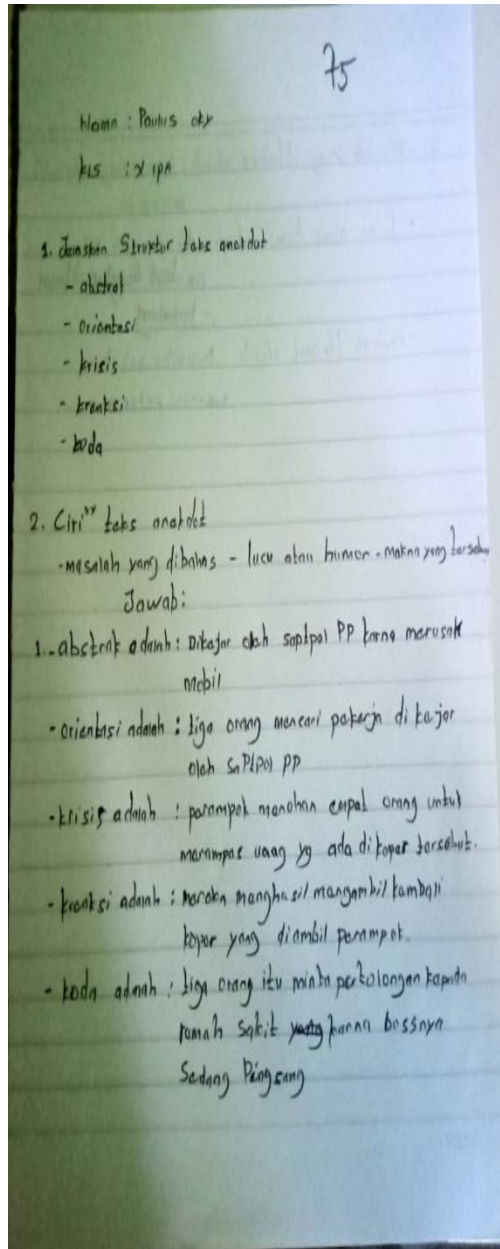 75
Nama : Paulus oky
kls : X IPA
1. Jenaskan Struktur taks anekdot
- abstrak
- orientasi
- krisis
- kreaksi
- koda
2. Ciri" taks anekdot
- masalah yang dibahas - lucu atau humor - makna yang
Jawab :
1. - abstrak adalah : Dikejar oleh saptpol PP karna merusak
mobil
- orientasi adalah : tiga orang mencari pekerja di kejar
oleh SaPtpol PP
- krisis adalah : perampok menahan empat orang untuk
merampas uang yg ada di koper tersebut.
- kreaksi adalah : mereka menghasil mangambil kambali
koper yang diambil perampok.
- koda adalah : tiga orang itu minta pertolongan kapada
rumah sakit karna bossnya
Sedang Pingsang